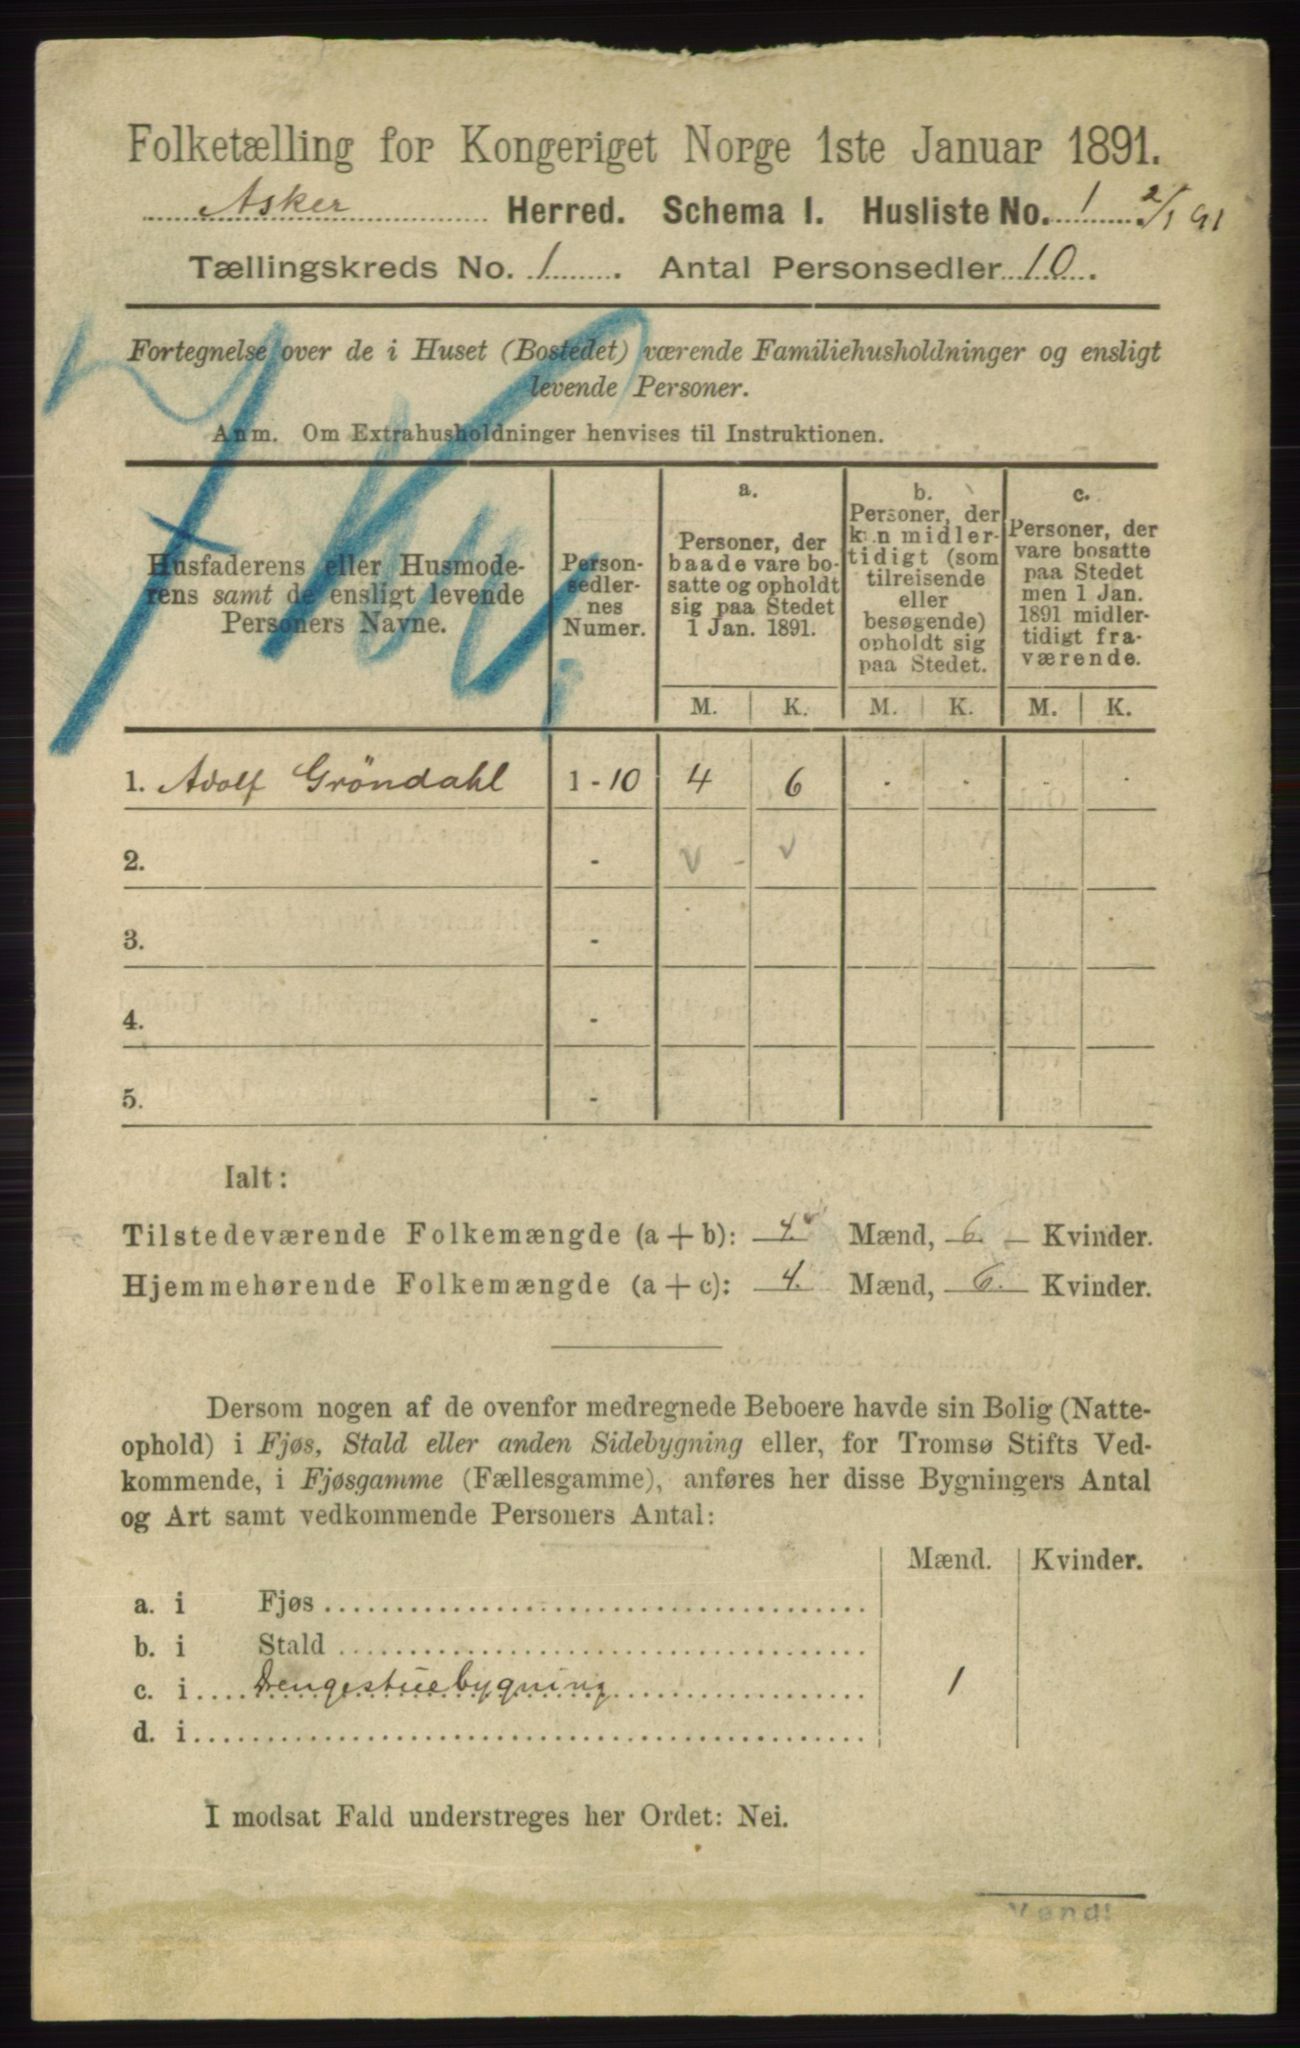 Folketælling for Kongeriget Norge 1ste Januar 1891.
Asker Herred. Schema I. Husliste No. 1 2/1 91
Tællingskreds No. 1. Antal Personsedler 10.
Fortegnelse over de i Huset (Bostedet) værende Familiehusholdninger og ensligt
levende Personer.
Anm. Om Extrahusholdninger henvises til Instruktionen.
Husfaderens eller Husmode-
rens samt de ensligt levende
Personers Navne.
Person-
sedler-
nes
Numer.
a.
Personer, der
baade vare bo-
satte og opholdt
sig paa Stedet
1 Jan. 1891.
b.
Personer, der
kun midler-
tidigt (som
tilreisende
eller
besøgende)
opholdt sig
paa Stedet.
c.
Personer, der
vare bosatte
paa Stedet
men 1 Jan.
1891 midler-
tidigt fra-
værende.
M. K. M. K. M. K.
1. Adolf Gröndahl 1 - 10 4 6 - - - -
2. - v - v
3. -
4. -
5. -
Ialt:
Tilstedeværende Folkemængde (a + b): 4. Mænd, 6. Kvinder.
Hjemmehørende Folkemængde (a + c): 4. Mænd, 6. Kvinder.
Dersom nogen af de ovenfor medregnede Beboere havde sin Bolig (Natte-
ophold) i Fjøs, Stald eller anden Sidebygning eller, for Tromsø Stifts Ved-
kommende, i Fjøsgamme (Fællesgamme), anføres her disse Bygningers Antal
og Art samt vedkommende Personers Antal:
Mænd. Kvinder.
a. i Fjøs
b. i Stald
c. i Drengestuebygning 1
d. i
I modsat Fald understreges her Ordet: Nei.
Vend!